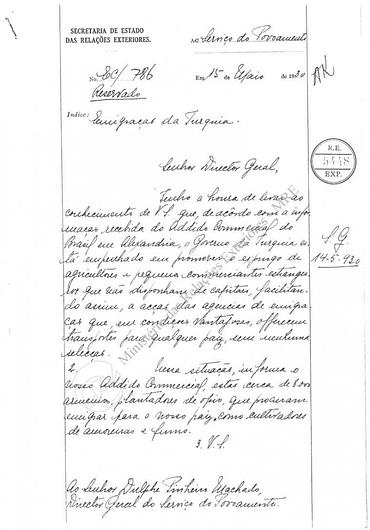 SECRETARIA DE ESTADO
DAS RELAÇÕES EXTERIORES.
AO Serviço do Povoamento
No. EC/786
Em 15 de Maio de 1930
Reservado
Indice:
Emigração da Turquia.
Senhor Director Geral,
R.E.
5448
EXP.
Tenho a honra de levar ao
conhecimento de V.S. que, de acôrdo com a infor
mação, recebida do Addido Commercial do
Brasil em Alexandria, o Governo da Turquia es
tá empenhado em promover o expurgo de
agricultores e pequenos commerciantes estrangei
ros que não disponham de capitaes, facilitan
do assim, a acção das agencias de emigra
ção que, em condições vantajosas, offerecem
transportes para qualquer paiz, sem nenhuma
selecção.
S.G.
14-5-930
2. Nessa situação, informa o
nosso Addido Commercial, estão cerca de 8.000
armenios, plantadores de opio, que procuram
emigrar para o nosso paiz, como cultivadores
de amoreiras e fumo.
3. V.S.
Ao Senhor Dulphe Pinheiro Machado,
Director Geral do Serviço do Povoamento.
Ministério das Relações Exteriores - MRE